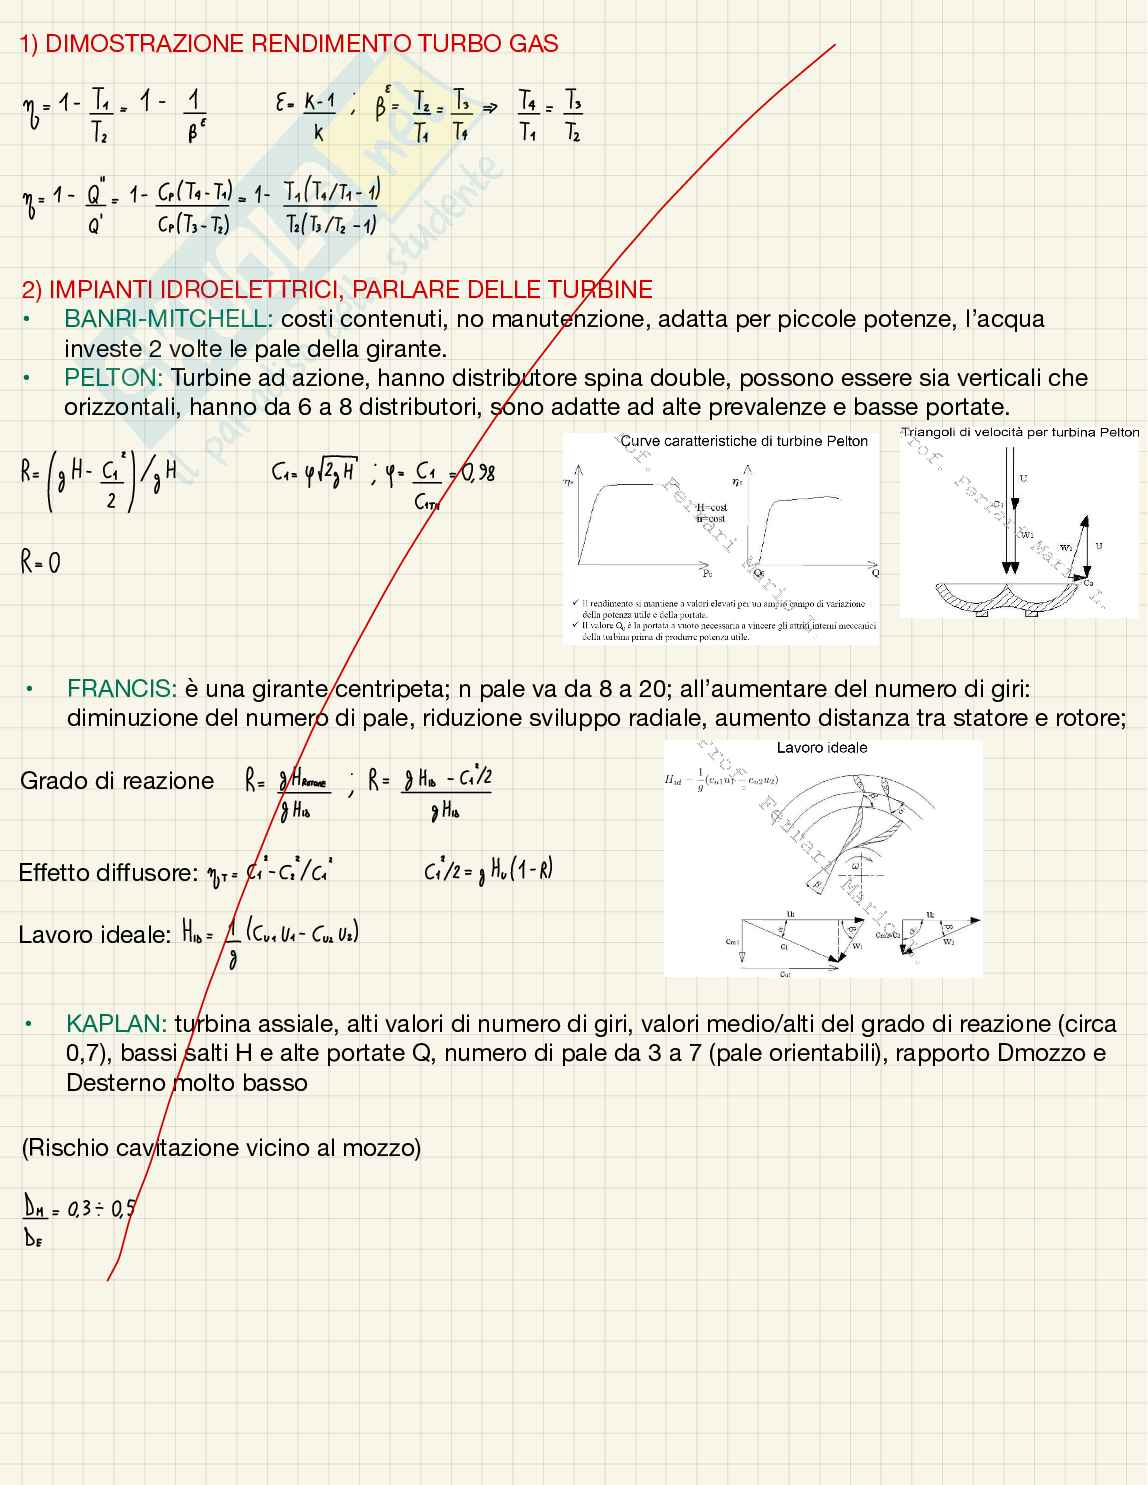 1) DIMOSTRAZIONE RENDIMENTO TURBO GAS
η = 1 - T₁/T₂ = 1 - 1/β^ε    ε = k-1/k ; β^ε = T₂/T₁ = T₃/T₄ ⇒ T₄/T₁ = T₃/T₂
η = 1 - Q''/Q' = 1 - Cp(T₄-T₁)/Cp(T₃-T₂) = 1 - T₁(T₄/T₁-1)/T₂(T₃/T₂-1)
2) IMPIANTI IDROELETTRICI, PARLARE DELLE TURBINE
• BANRI-MITCHELL: costi contenuti, no manutenzione, adatta per piccole potenze, l'acqua
investe 2 volte le pale della girante.
• PELTON: Turbine ad azione, hanno distributore spina double, possono essere sia verticali che
orizzontali, hanno da 6 a 8 distributori, sono adatte ad alte prevalenze e basse portate.
R = (gH - C₁²/2)/gH    C₁ = φ√2gH ; φ = C₁/C₁TH = 0,98
R = 0
Curve caratteristiche di turbine Pelton
H=cost
n=cost
✓ Il rendimento si mantiene a valori elevati per un ampio campo di variazione
della potenza utile e della portata.
✓ Il valore Q₀ è la portata a vuoto necessaria a vincere gli attriti interni meccanici
della turbina prima di produrre potenza utile.
Triangoli di velocità per turbina Pelton
U
W₁
U
• FRANCIS: è una girante centripeta; n pale va da 8 a 20; all'aumentare del numero di giri:
diminuzione del numero di pale, riduzione sviluppo radiale, aumento distanza tra statore e rotore;
Grado di reazione R = gH ROTORE/gH ID ; R = gH ID - C₁²/2/gH ID
Effetto diffusore: ηT = C₁²-C₂²/C₁²    C₁²/2 = gHu(1-R)
Lavoro ideale: H ID = 1/g (Cu₁U₁ - Cu₂U₂)
Lavoro ideale
H_id = 1/g (c_u1 u₁ - c_u2 u₂)
• KAPLAN: turbina assiale, alti valori di numero di giri, valori medio/alti del grado di reazione (circa
0,7), bassi salti H e alte portate Q, numero di pale da 3 a 7 (pale orientabili), rapporto Dmozzo e
Desterno molto basso
(Rischio cavitazione vicino al mozzo)
D_M/D_E = 0,3 ÷ 0,5
il paradiso dello studente
Prof. Ferrari Mario